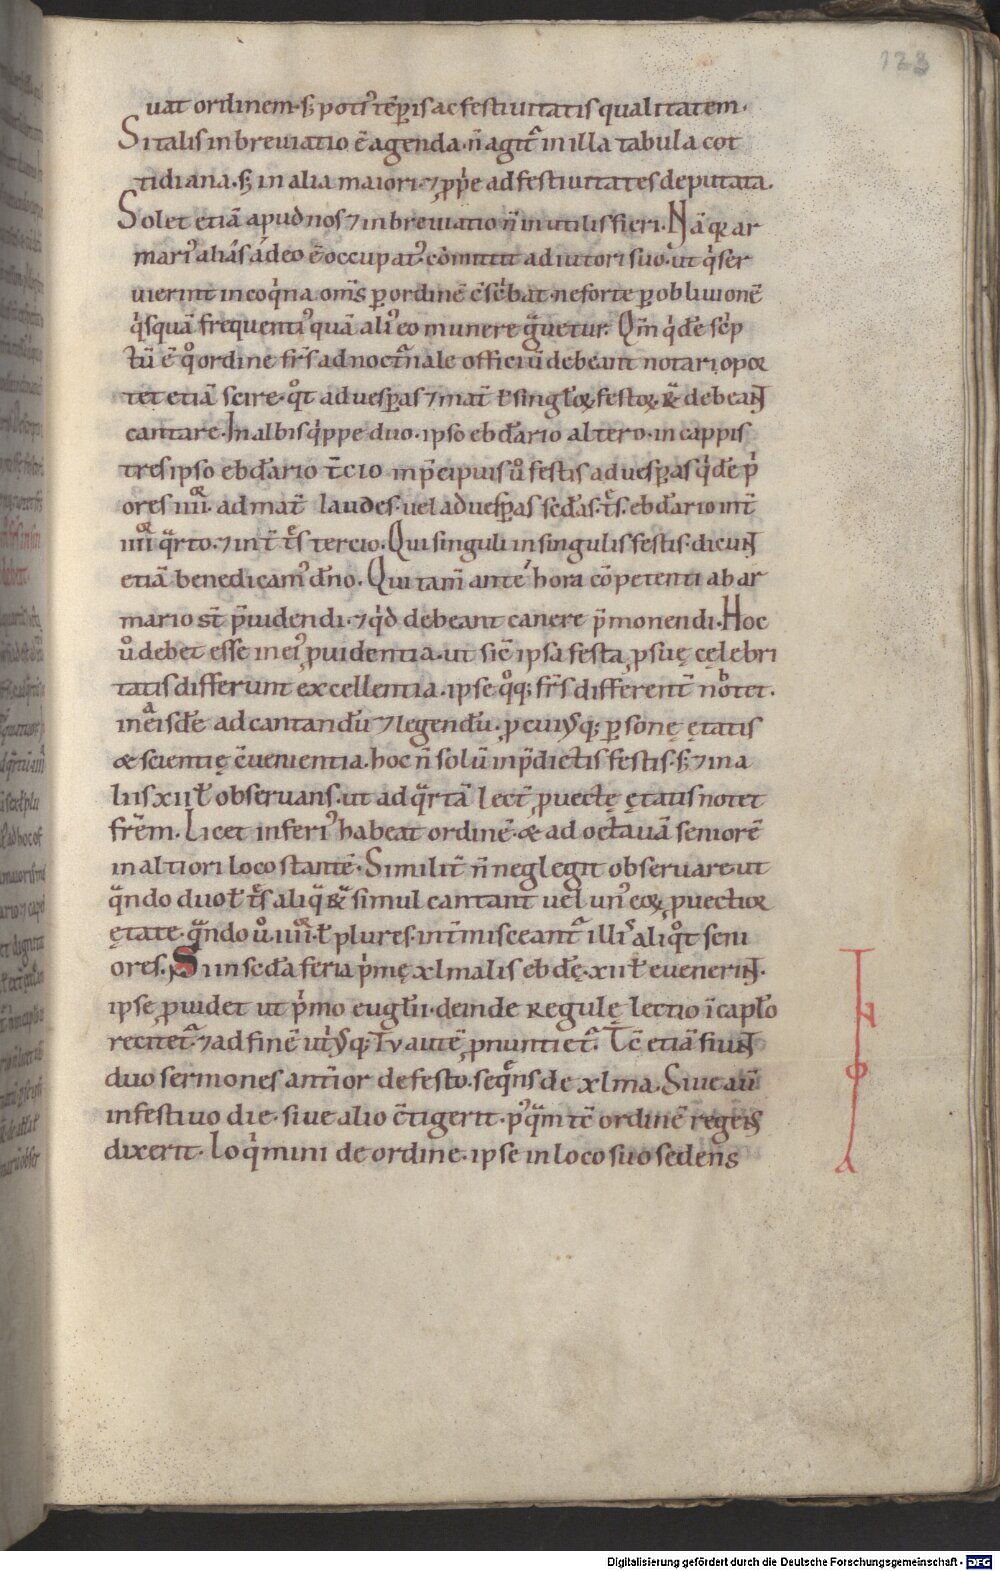 123
uat ordinem· s; poti᾽ tēp̄is ac festiuitatis qualitatem·
Si talis in breuiatio ē agenda· n̄ agit᷑ in illa tabula cot
tidiana· s; in alia maiori· ⁊ ꝓp̄e ad festiuitates deputata.
Solet etiā apud nos ⁊ in breuiatio n̄ inutilis fieri. Nā qꝛ ar
mari᾽ ali᾽ás ádeo ē occupat᾽· cōmittit adiutori suo· ut qͥ ser
uierint in coqͥna om̄s ꝑ ordinē c̄sc̄bat· ne forte ꝑ obliuionē
qͥsquā frequenti᾽ quā ali᾽ eo munere gᷓuetur. Qm̄ qͥdē sc̄p
tū ē qͦ ordine fr̄s ad noct᷑nale officiū debeant notari opor
tet etiā scire· qͦt ad uesꝑas ⁊ mat̄ ł singłoꝝ festoꝝ R̄ debeant
cantare· In albis qͥppe duo· ipso ebd̄ario altero· in cappis
tres ipso ebd̄ario t̄cio in p̄cipuis ů festis ad uesꝑas qͥdē pͥ
ores iiii· ad mat̄ laudes· uel ad uesꝑas sc̄das· t͛s· ebd̄ario int̄
iiii qᷓrto· ⁊ int̄ t͛s tercio. Qui singuli in singulis festis dicunt
etiā benedicam᾽ dn̄o. Qui tam̄ ante hora cōpetenti ab ar
mario st̄ p̄uidendi· ⁊ qͥd debeant canere p̄monendi. Hoc
ů debet esse in ei᾽ ꝓuidentia· ut sic̄ ipsa festa ꝓ suę cęlebri
tatis differunt excellentia· ipse qͦq; fr̄s different̄ notet.
in eisdē ad cantandū ⁊ legendū· ꝓ cui᾽q; ꝑsonę ętatis
& scientię c̄uenientia· hoc n̄ solū in p̄dictis festis· s; ⁊ in a
liis xii ł obseruans· ut ad qᷓrtā lect̄ ꝓuectę ętatis notet
frēm. Licet inferi᾽ habeat ordinē· & ad octauā seniorē
in altiori loco stantē· Similit̄ n̄ neglegit obseruare· ut
qᷓndo duo ł t͛s aliq̄ R̄ simul cantant uel un᾽ eoꝝ ꝓuectior
ętate· qᷓndo ů· iiii· ł plures· int̄misceant᷑ illi᾽ aliqͦt seni
ores. Si in sc̄da feria pͥmę xlmalis ebd̄ę· xii ł euenerint·
ipse ꝓuidet ut pͥmo eugłii· deinde regulę lectio ī capło
recitet᷑· ⁊ ad finē ut᷑q; Tu autē ꝓnuntiet᷑. Tc̄ etiā fiunt
duo sermones anterior de festo· seq̄ns de xlma. Siue aū
in festiuo die· siue alio c̄tigerit· p᾽qᷓm tē ordinē regens
dixerit· loqͥmini de ordine· ipse in loco suo sedens